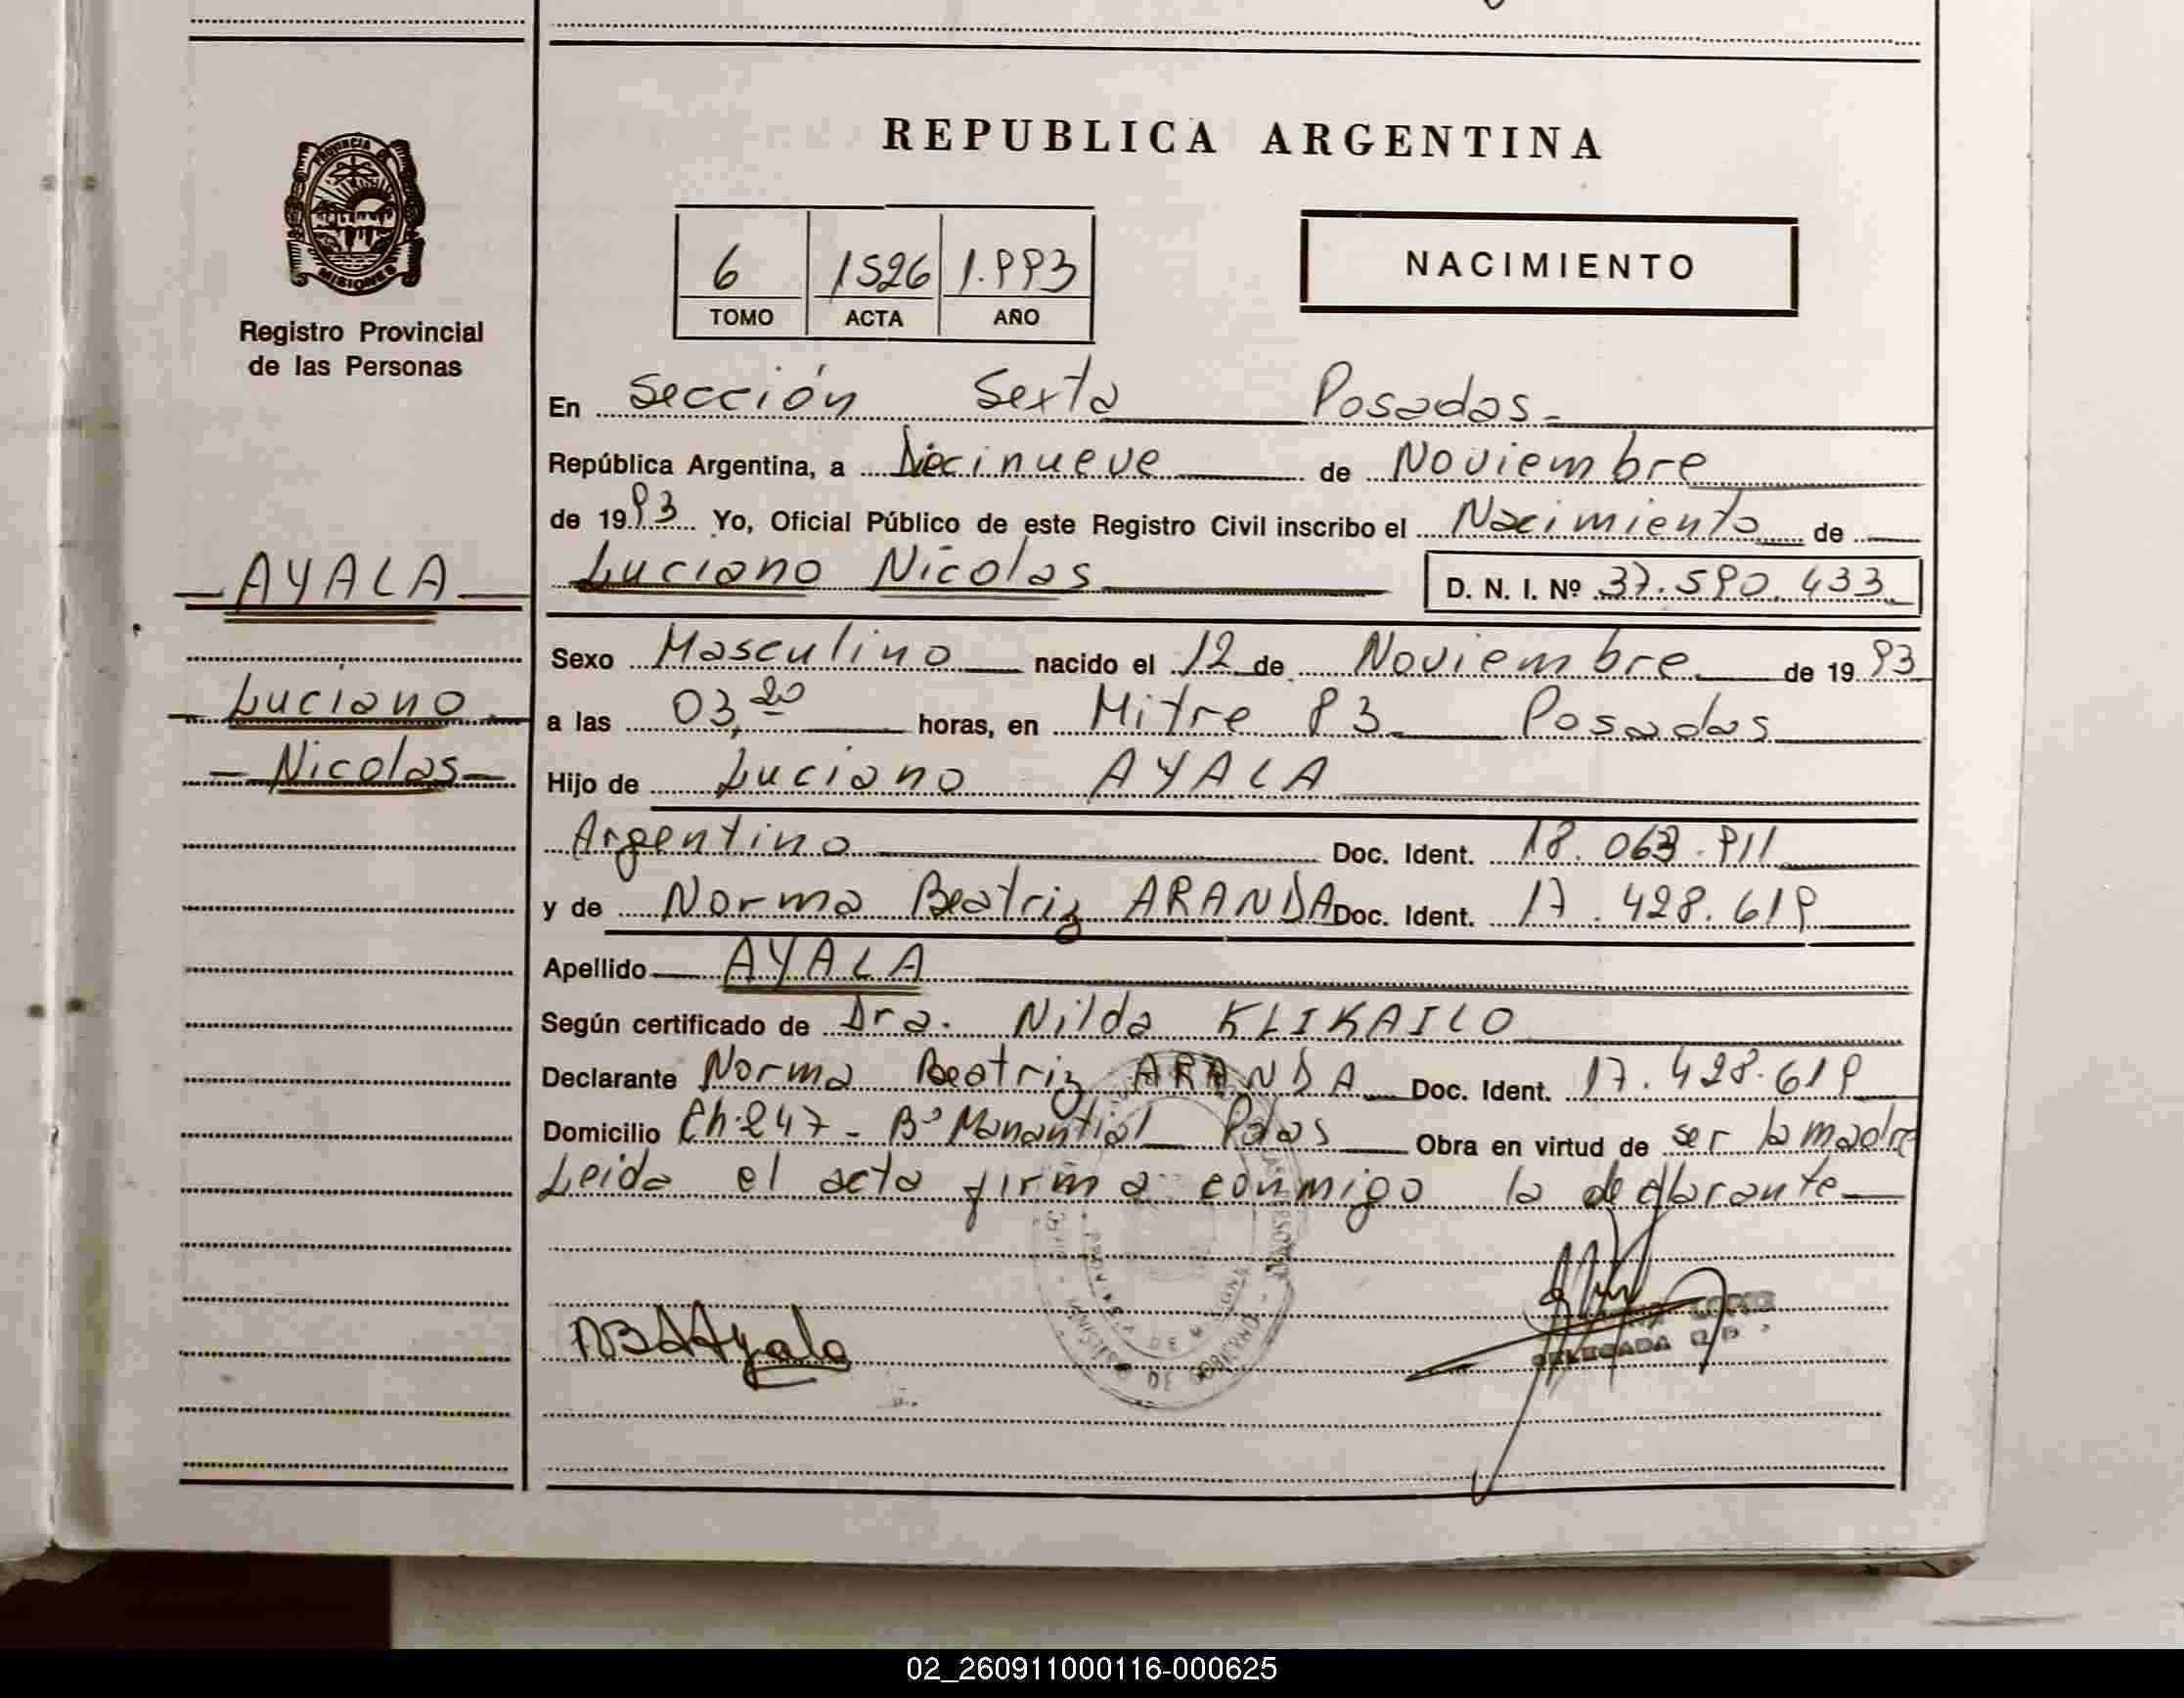 REPUBLICA ARGENTINA
PROVINCIA DE
MISIONES
Registro Provincial
de las Personas
6 1526 1.993
TOMO ACTA AÑO
NACIMIENTO
En Sección Sexta Posadas-
República Argentina, a Diecinueve de Noviembre
de 1993 Yo, Oficial Público de este Registro Civil inscribo el Nacimiento de
AYALA
Luciano Nicolas D. N. I. Nº 37.590.433
Sexo Masculino nacido el 12 de Noviembre de 1993
Luciano
a las 03,20 horas, en Mitre 93 Posadas
Nicolas
Hijo de Luciano AYALA
Argentino Doc. Ident. 18.063.911
y de Norma Beatriz ARANDA Doc. Ident. 17.428.619
Apellido AYALA
Según certificado de Dra. Nilda KLIKAILO
Declarante Norma Beatriz ARANDA Doc. Ident. 17.428.619
Domicilio Ch.247 - Bº Manantial Pdas Obra en virtud de ser la madre
Leida el acta firma conmigo la declarante
NBAAyala
DELEGADA
DE GOBIERNO
02_260911000116-000625